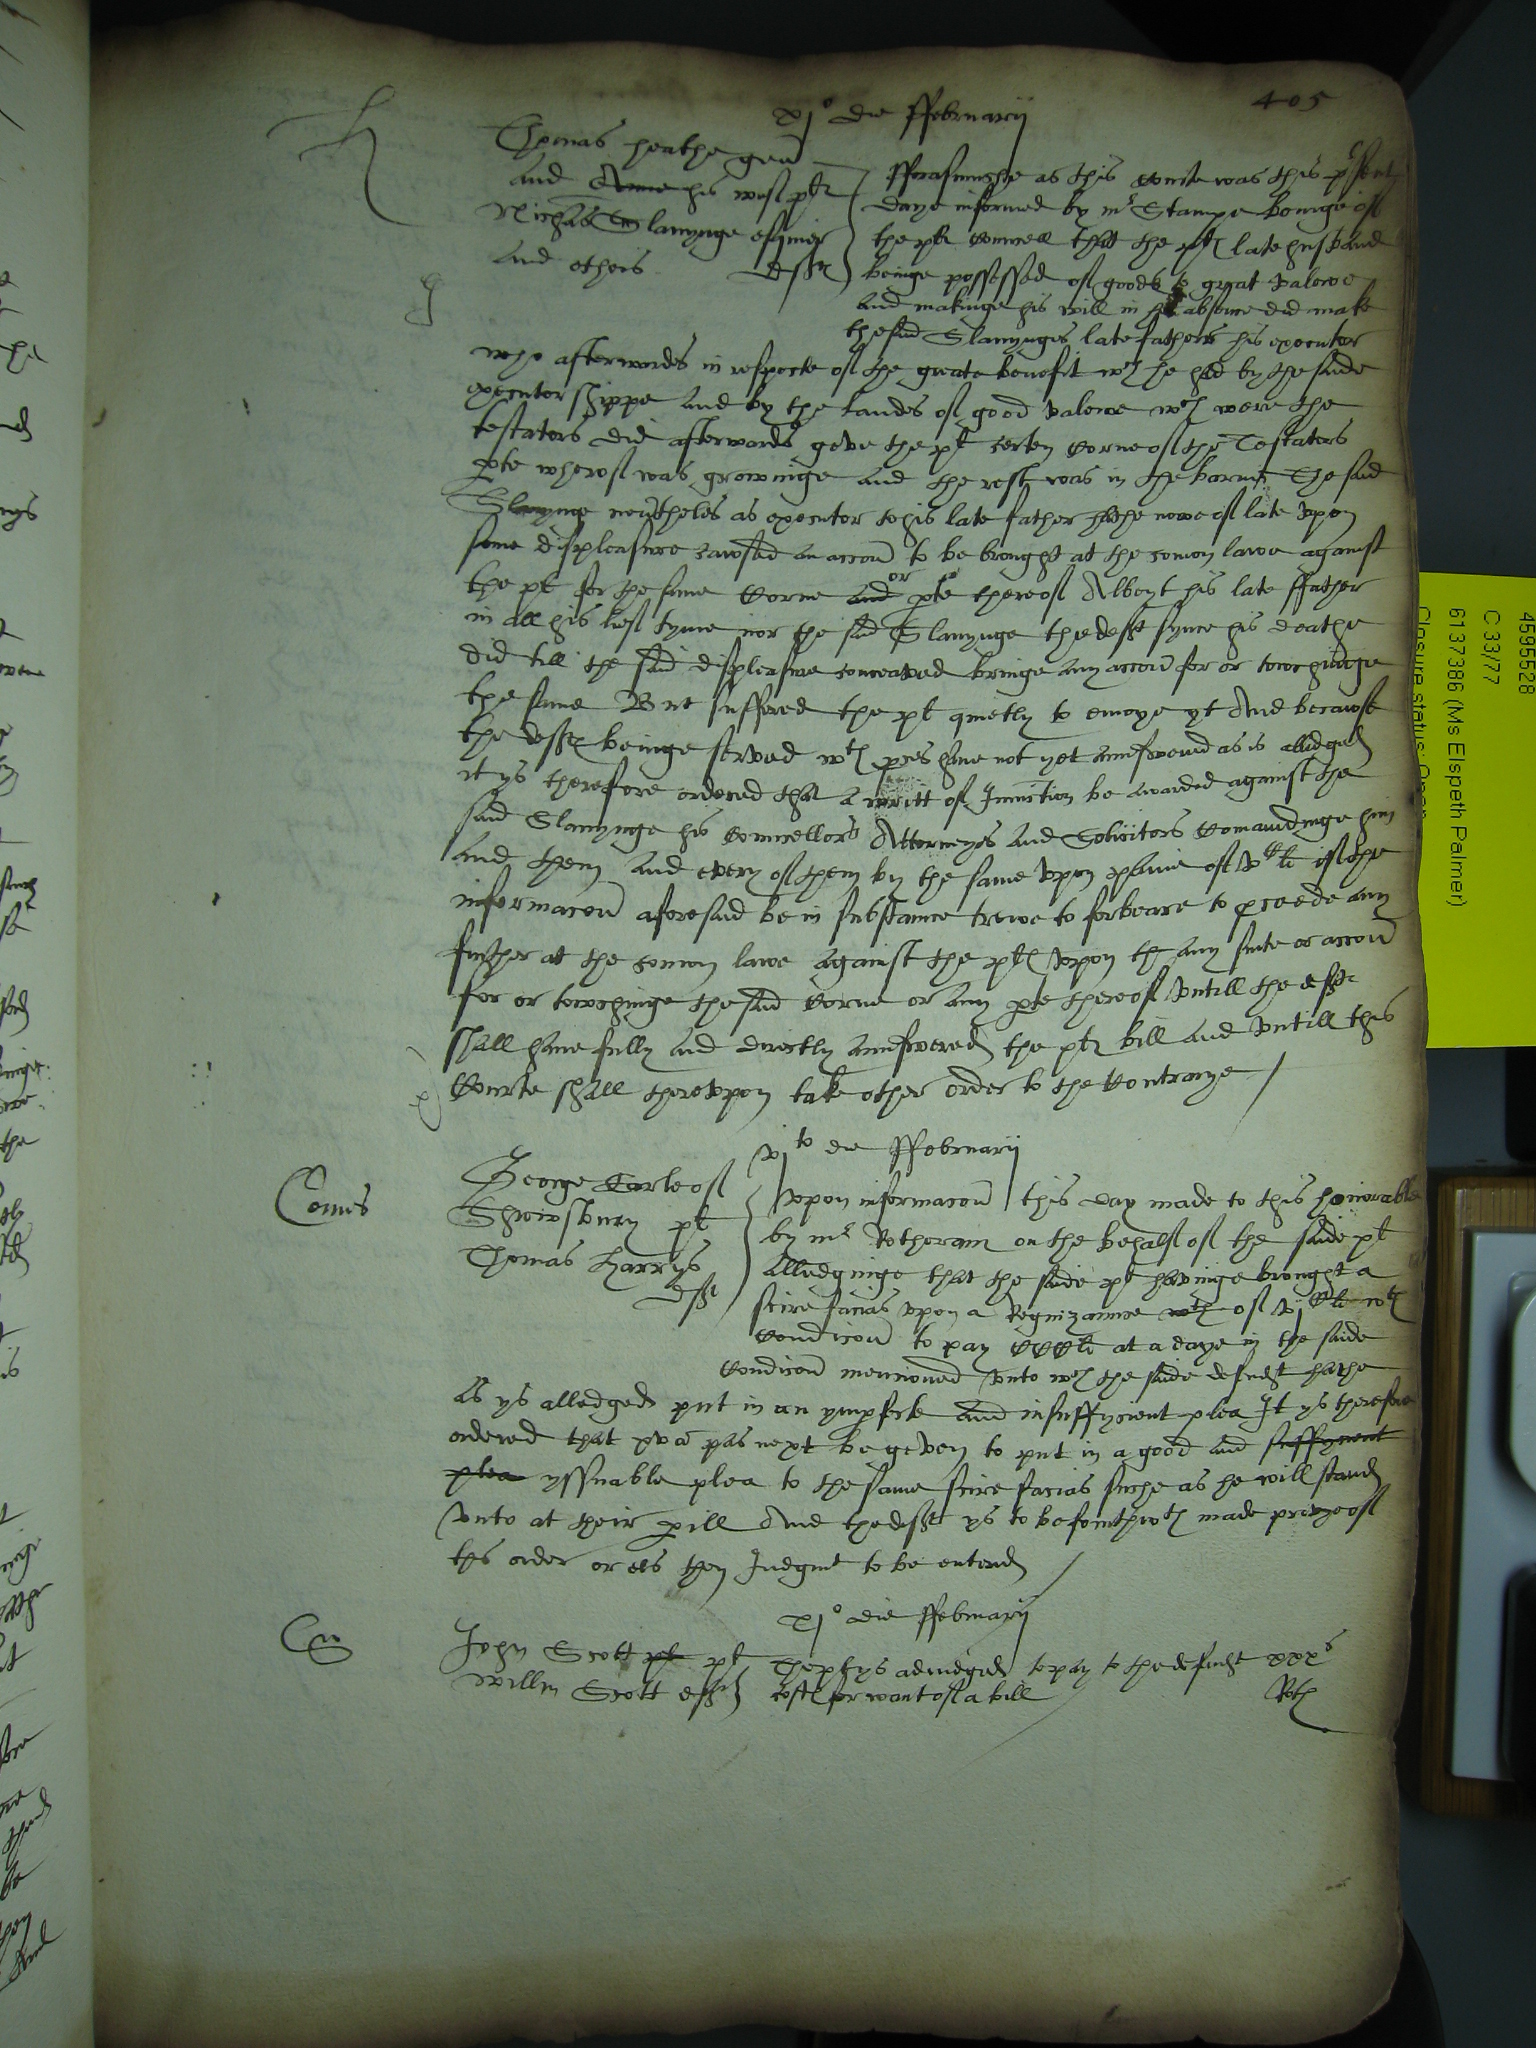 405
xjo die ffebruarij
Thomas heathe gen
and Anne his wief pltes
Nichas Slanynge esquier
and others defts
fforasmuche as this Courte was this psent
daye informed by mr Stampe beinge of
the pltes Councell that the pltes late husband
beinge possessed of goods to great valewe
and makinge his will in his absence did make
the said Slanynges late father his executor
who afterwardes in respecte of the greate benefit wch he had by the saide
executorshippe and by the landes of good valewe wch were the
testators did afterwards geve the plt certen Corne of the Testators
pte wherof was growinge and the rest was in the barne The said
Slanynge nevtheles as executor to his late father hathe nowe of late vpon
some displeasure cawsed an accon to be brought at the comon lawe against
the plt for the same Corne and or pte thereof Albeyt his late ffather
in all his lief tyme nor the said Slanynge the deft synce his deathe
did till the said displeasure conceaved bringe any accon for or towchinge
the same But suffered the plt quietly to enioye yt And because
the defts beinge served wth pces have not yet aunswered as is alledged
it ys therefore ordered that a writt of Iniunction be awarded against the
said Slanynge his Councellors Attorneyes and Solicitors Comaundinge him
and them and every of them by the same vpon paine of vCli if the
informacon aforesaid be in substance trewe to forbeare to pceede any
further at the comon lawe against the pltes vpon the any suite or accon
for or towchinge the said Corne or any pte thereof vntill the defts
shall have fully and directly aunswered the pltes bill and vntill this
Courte shall therevpon take other order to the Contrarye
vjto die ffebruarij
Comes
George Earle of
Shrewsbury plt
Thomas Harrys
deft
Vpon informacon this day made to this honorable
by mr Rotheram on the behalf of the saide plt
alledginge that the saide plt havinge brought a
scire facias vpon a Regnizaunce wch of vjCli wth
Condicon to pay CCCli at a daye in the saide
Condicon mencioned vnto wch the saide defendt hathe
as ys alledged put in an ympfecte and insuffycient plea It ys therefore
ordered that xva pas next be geven to put in a good and suffycient
plea yssuable plea to the same scire facias suche as he will stand
vnto at their pill And the deft ys to be forthwth made prevye of
ths order or els then Iudgmt to be entered
xjo die ffebruarij
John Scott plt plt
Willm Scott deft
The plt ys adiudged to pay to the defendt xxxs
costes for want of a bill
4595528
C 33/77
6137386 (Ms Elspeth Palmer)
Closure status: Open